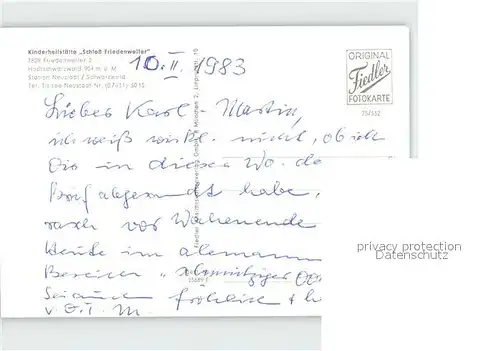 Kinderheilstätte „Schloß Friedenweiler"
7829 Friedenweiler 2
Hochschwarzwald 904 m ü. M
Station Neustadt / Schwarzwald
Tel. Titisee-Neustadt Nr. (07651) 5015
10. II. 1983
ORIGINAL
Fiedler
FOTOKARTE
Lieber Karl-Martin,
ich weiß wirkl. nicht, ob ich
Dir in dieser Wo. de
Brief abgesandt habe,
rasch vor Wochenende
Heute im alemann
Bereich „schmutziger Do
Sei auch fröhlich + h
v. O. T. M.
privacy protection
Datenschutz